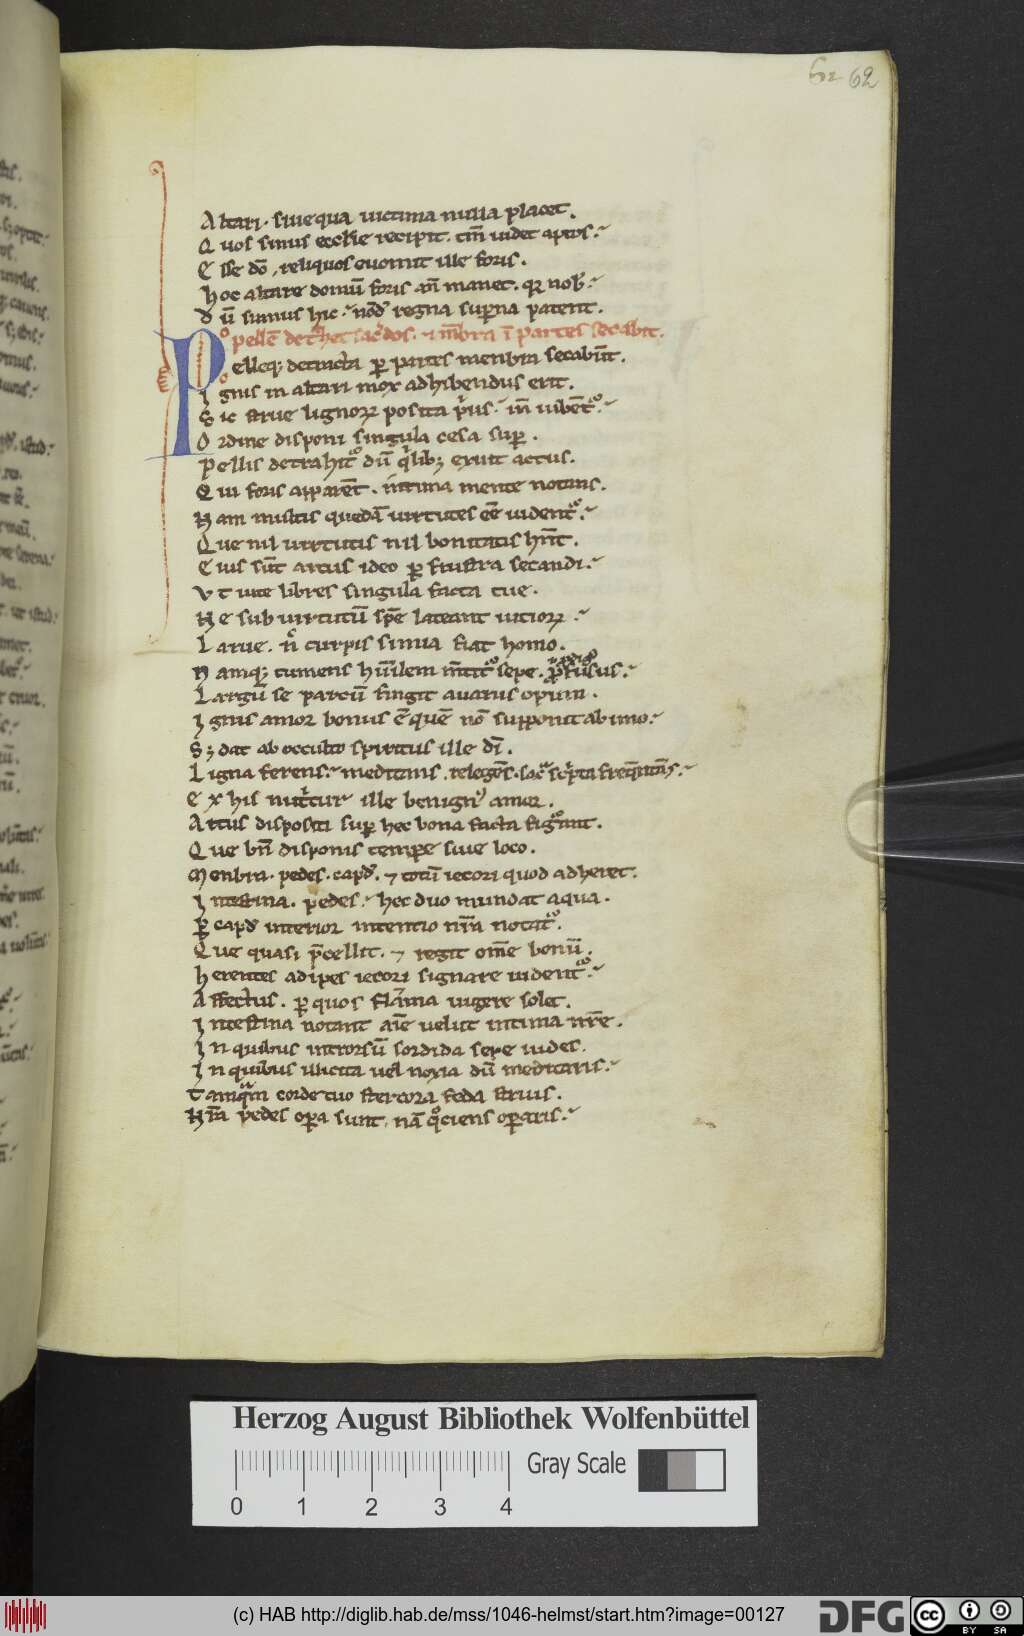 62 62
Altari. siue qua uictima nulla placet.
Quos sinus eccl̄ie recipit. tm̄ uidet aptos.
Esse dō. reliquos euomit ille foris.
Hoc altare domū foris añ manet. qr̄ nob᷒.
Dū sumus hic. nōd᷒ regna suꝑna patent.
pellē det̃het sac̃dos. ⁊ m̄bra ī partes secabit.
Pelleq; detracta ꝑ partes menbra secabūt.
Ignis in altari mox adhibendus erit.
Sic strue lignoꝝ posita p̃us.
Ordine disponi singula cesa suꝑ.
Pellis detrahit᷑ dū q̃lib; eruit actus.
Qui foris apparēt. intima mente notans.
Nam multis quedā uirtutes eē uident᷑.
Que nil uirtutis nil bonitatis hn̄t.
Cuius sūt artus ideo ꝑ frustra secandi.
Vt uite libres singula facta tue.
Ne sub uirtutū spē lateant uitioꝝ.
Larue. n̄ turpis simia fiat homo.
Namq; tumens humilem m̄tit᷑ sepe.
Largū se parcū fingit auarus opum.
Ignis amor bonus ē quē nō supponit ab imo.
S; dat ab occulto spiritus ille dī.
Ligna ferens. meditans. relegēs. sac̃ sc̃pta freq̄ntās.
Ex his nut̃tur ille benign᷒ amor.
Artus dispositi suꝑ hec bona facta figurant.
Que bn̄ disponis tempore siue loco.
Menbra. pedes. capd᷒. ⁊ totū iecori quod adheret.
Intestina. pedes. hec duo mundat aqua.
ꝑ capd᷒ interior intentio nr̄a notat᷑.
Que quasi p̄cellit. ⁊ regit om̄e bonū.
Herentes adipes iecori signare uident᷑.
Affectus. ꝑ quos flāma uigere solet.
Intestina notant aīe uelut intima nr̄e.
In quibus introrsū sordida sepe uides.
In quibus illicita uel noxia dū meditaris.
Tamquam corde tuo stercora feda struis.
Nr̄a pedes oꝑa sunt. nā quociens oꝑaris.
Herzog August Bibliothek Wolfenbüttel
Gray Scale
0 1 2 3 4
(c) HAB http://diglib.hab.de/mss/1046-helmst/start.htm?image=00127
DFG
cc BY SA